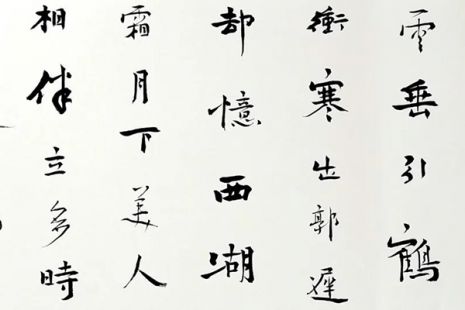 垂引鶴
衝寒出郭遲
却憶西湖
霜月下美人
相伴立多時